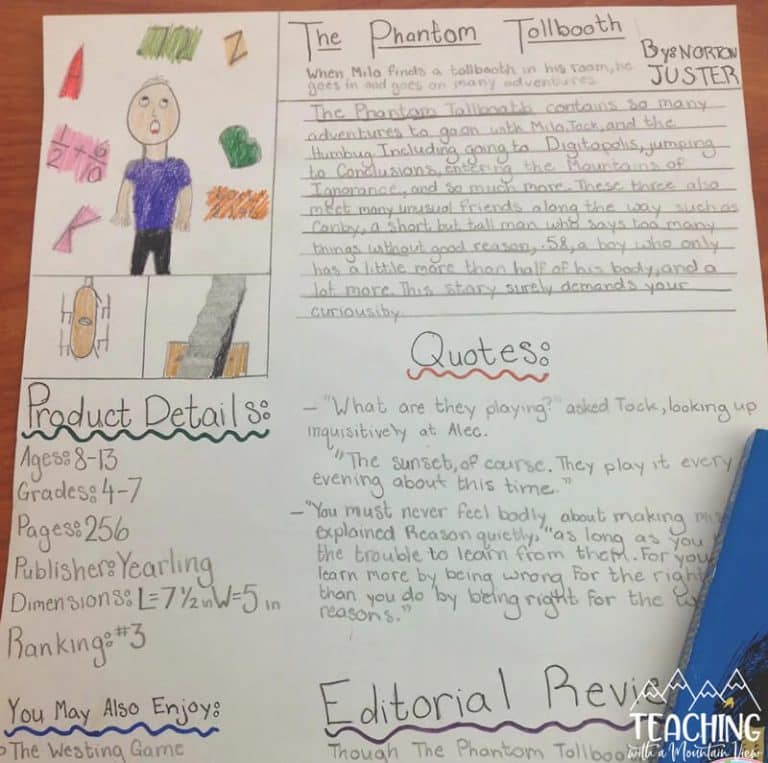 The Phantom Tollbooth
By: NORTON
JUSTER
When Milo finds a tollbooth in his room, he
goes in and goes on many adventures.
The Phantom Tollbooth contains so many
adventures to go on with Milo, Tock, and the
Humbug Including going to Digitopolis, jumping
to Conclusions, entering the Mountains of
Ignorance, and so much more. These three also
meet many unusual friends along the way such as
Canby, a short but tall man who says too many
things without good reason, .58, a boy who only
has a little more than half of his body, and a
lot more. This story surely demands your
curiousiby.
1/2 + 6/10
Z
Quotes:
- "What are they playing?" asked Tock, looking up
inquisitively at Alec.
"The sunset, of course. They play it every
evening about this time."
- "You must never feel badly about making
explained Reason quietly, "as long as you
the trouble to learn from them. For you
learn more by being wrong for the right
than you do by being right for the
reasons."
Product Details:
Ages: 8-13
Grades: 4-7
Pages: 256
Publisher: Yearling
Dimensions: L=7 1/2 in W=5 in
Ranking: #3
You May Also Enjoy:
The Westing Game
Editorial Revie
Though The Phantom Tollboo
TEACHING
with a Mountain View